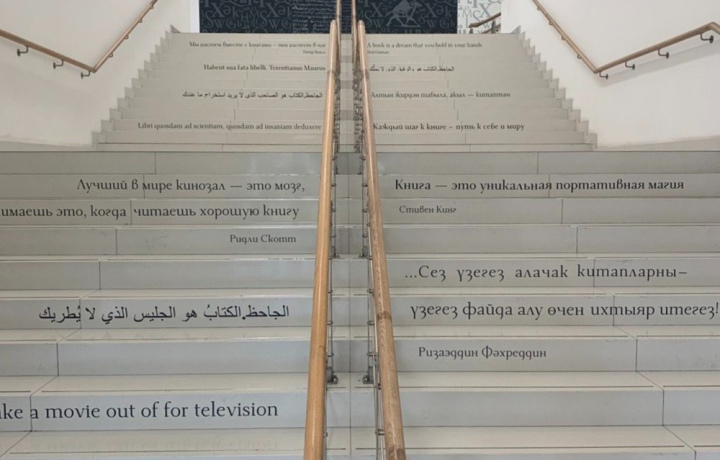 Мы растем вместе с книгами – они растут в нас
A book is a dream that you hold in your hands
Habent sua fata libelli. Terentianus Maurus
الجاحظ.الكتاب هو
الجاحظ.الكتاب هو الصاحب الذى لا يريد استخراج ما عندك
Алтын җирдән табыла, акыл – китаптан
Libri quosdam ad scientiam, quosdam ad insaniam deduxere
Каждый шаг к книге – путь к себе и миру
Лучший в мире кинозал — это мозг,
Книга — это уникальная портативная магия
имаешь это, когда читаешь хорошую книгу
Стивен Кинг
Ридли Скотт
...Сез үзегез алачак китапларны–
الجاحظ.الكتابُ هو الجليس الذي لا يُطريك
үзегез файда алу өчен ихтыяр итегез!
Ризаэддин Фәхреддин
ke a movie out of for television